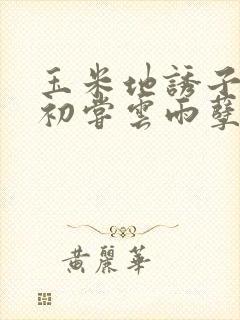 玉米地誘子
初嘗雲雨孽
黃麗華